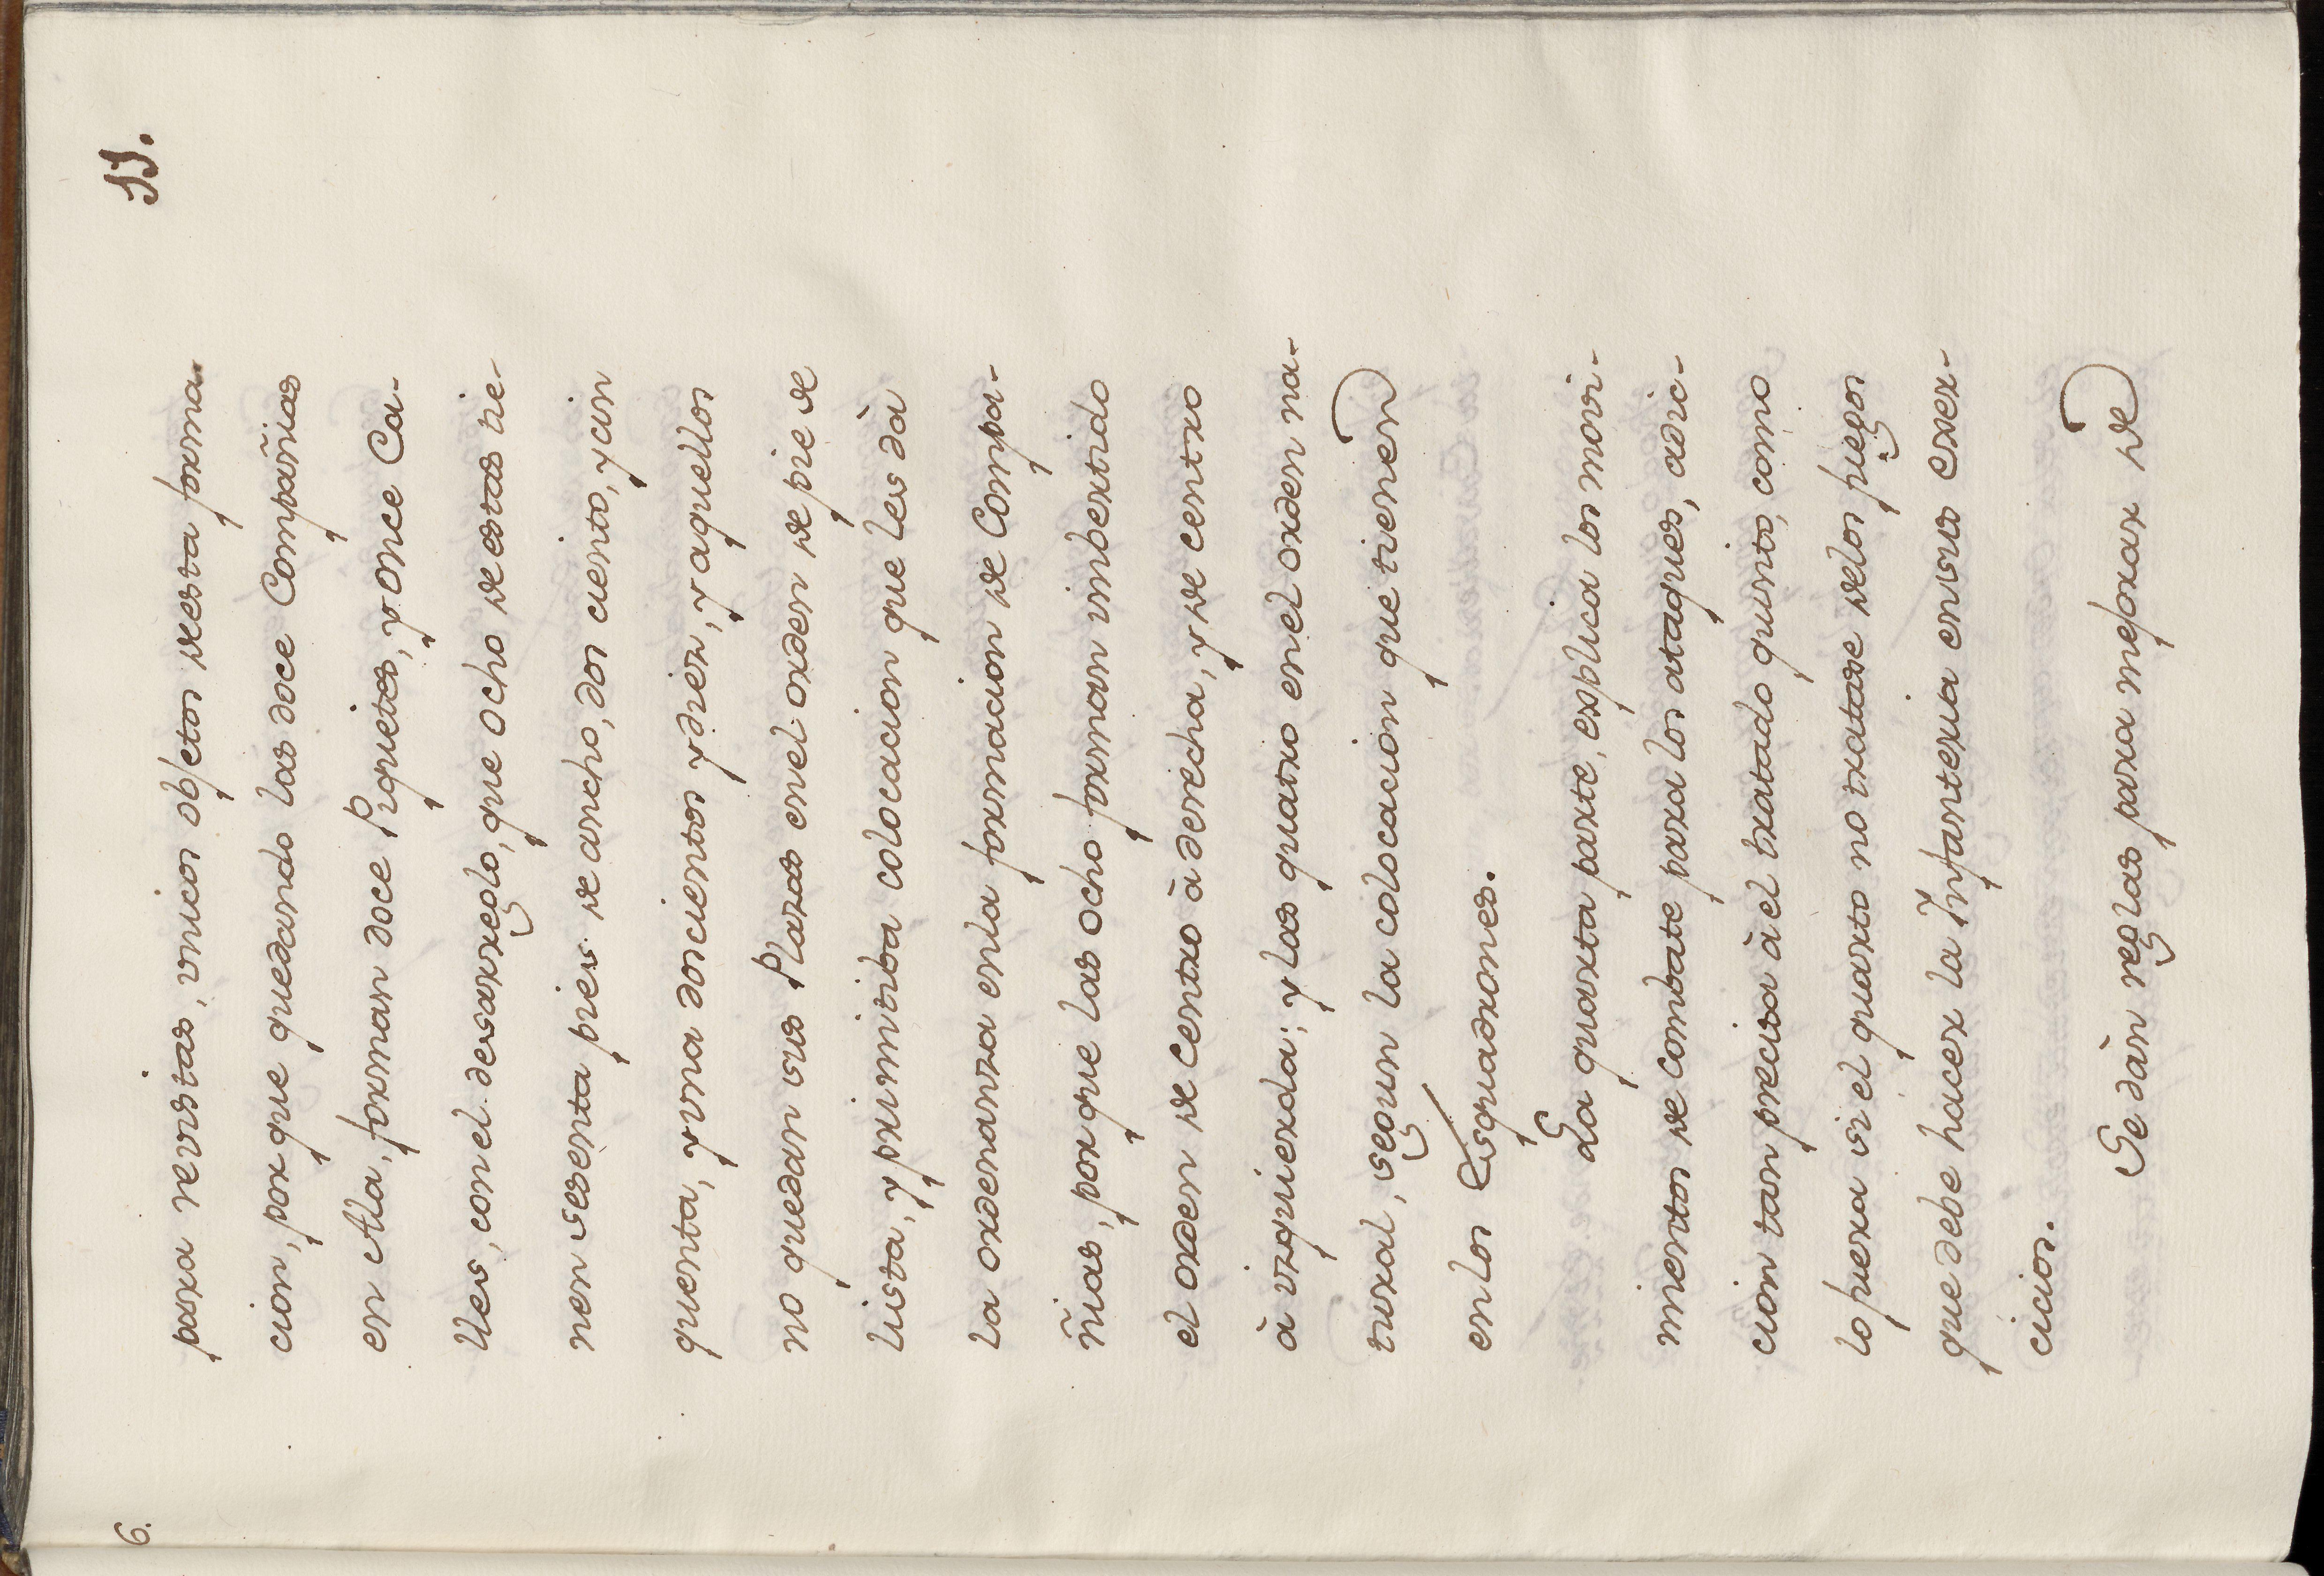 6.
11.
para revistas, unicos objetos desta forma-
cion, por que quedando las doce Compañias
en Ala, forman doce Piquetes, y once Ca-
lles, con el desarreglo, que ocho de estas tie-
nen sesenta pies de ancho, dos ciento, y cin
quenta, y una doscientos y diez, y aquellos
no quedan sus Plazas en el orden de pie de
lista, y primitiba colocacion que les dà
la ordenanza en la formacion de Compa-
ñias, por que las ocho forman imbertido
el orden de centro à derecha, y de centro
à izquierda; y las quatro en el orden na-
tural, segun la colocacion que tienen
en los Esquadrones.
La quarta parte, explica los movi-
mientos de combate para los ataques, adic-
cion tan precisa à el tratado quinto, como
lo fuera si el quarto no tratase delos fuegos
que debe hacer la Infanteria en sus exer-
cicios.
Se dàn reglas para mejorar de